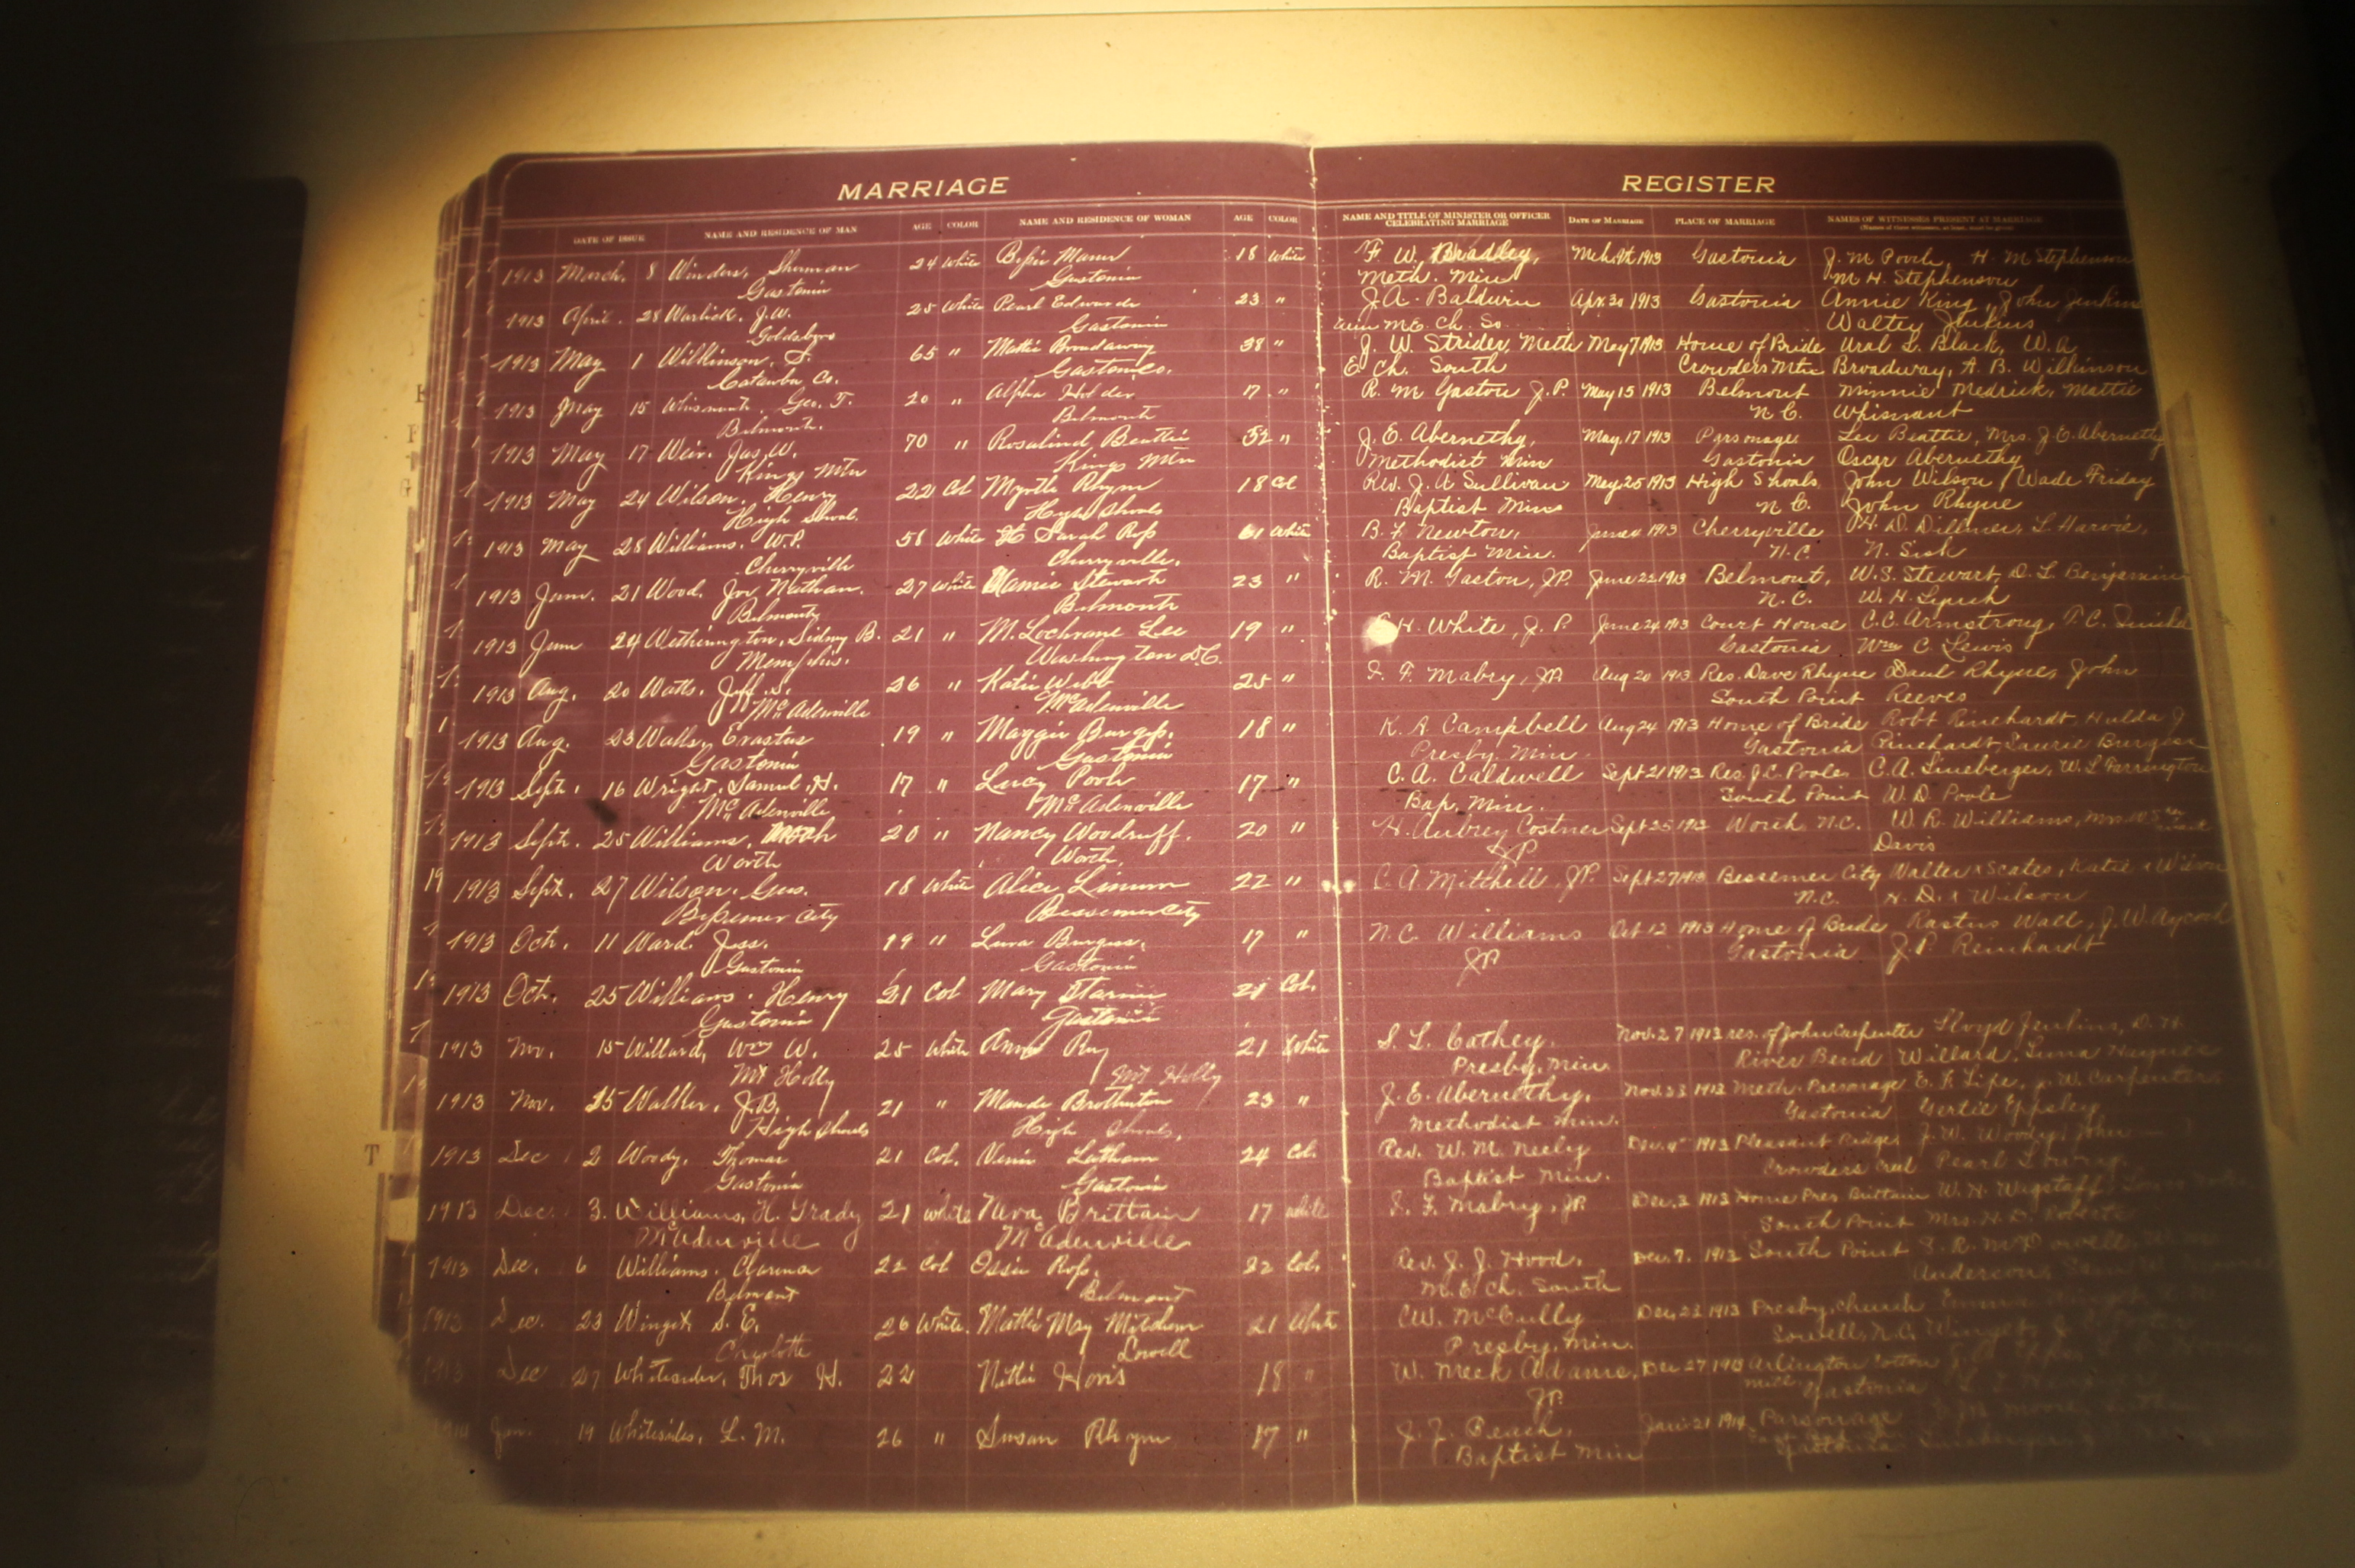 MARRIAGE REGISTER
DATE OF ISSUE NAME AND RESIDENCE OF MAN AGE COLOR NAME AND RESIDENCE OF WOMAN AGE COLOR NAME AND TITLE OF MINISTER OR OFFICER CELEBRATING MARRIAGE DATE OF MARRIAGE PLACE OF MARRIAGE NAMES OF WITNESSES PRESENT AT MARRIAGE
1913 March. 8 Winders, Sherman 24 White 18 White F. W. Bradley, 1913 Gastonia J. M. Pooch, H. M. Stephenson
Gastonia Gastonia Meth. Min M. H. Stephenson
1913 April. 28 Warlick. J.W. 25 White Pearl Edwards 23 " J. A. Baldwin Apr. 30 1913 Gastonia Annie King, John Jenkins
Goldsboro Gastonia M.E. Ch. So. Walter Jenkins
1913 May 1 Wilkinson, 65 " Mattie Broadaway 38 " J. W. Strider, Meth May 7 1913 Home of Bride Ural L. Black, W. A.
Catawba Co. Gaston Co. E. Ch. South Crowders Mtn Broadway, A. B. Wilkinson
1913 May 15 Whisnant, Geo. T. 20 " Alpha Holder 17 " R. M. Gaston J.P. May 15 1913 Belmont Minnie Medrick, Mattie
Belmont. Belmont N C. Whisnant
1913 May 17 Weir. Jas. W. 70 " Rosalind Beattie 52 " J. E. Abernethy, May. 17 1913 Parsonage Lee Beattie, Mrs. J. E. Abernethy
Kings Mtn Kings Mtn Methodist Min Gastonia Oscar Abernethy
1913 May 24 Wilson. Henry 22 Col Myrtle Rhyne 18 Col Rev. J. A Sullivan May 25 1913 High Shoals John Wilson, Wade Friday
High Shoal. High Shoals Baptist Min N C. John Rhyne
1913 May 28 Williams. W.P. 58 White Sarah Ross 61 White B. F. Newton, June 1913 Cherryville H. D. Dillmer, L. Harvie,
Cherryville Cherryville. Baptist Min. N.C N. Sisk
1913 June. 21 Wood. Jno Nathan. 27 White Mamie Stewart 23 " R. M. Gaston, JP. June 22 1913 Belmont, W.S. Stewart, D. L. Benjamin
Belmont Belmont N.C. W. H. Leputh
1913 June 24 Wetherington, Sidney B. 21 " M. Lochrane Lee 19 " H. White, J. P. June 24 1913 Court House C.C. Armstrong, T.C. Quickel
Memphis. Washington D.C. Gastonia Wm C. Lewis
1913 Aug. 20 Watts. Jeff. S. 26 " Katie Webb 25 " S. F. Mabry, JP. Aug 20 1913 Res. Dave Rhyne Daul Rhyne, John
McAdenville McAdenville South Point Reeves
1913 Aug. 23 Walls, Erastus 19 " Maggie Burgess. 18 " K. A. Campbell Aug 24 1913 Home of Bride Robt Rinehardt, Hulda J
Gastonia Gastonia Presby. Min. Gastonia Rinehardt, Laurie Burgess
1913 Sept. 16 Wright, Samuel, H. 17 " Lucy Pool 17 " C. A. Caldwell Sept 21 1913 Res. J.C. Poole C.A. Lineberger, W. L. Farrington
McAdenville McAdenville Bap. Min. South Point W. D Poole
1913 Sept. 25 Williams, 20 " Nancy Woodruff. 20 " H. Aubrey Costner Sept 25 1913 Worth N.C. W. R. Williams, Mrs.
Worth Worth. JP Davis
1913 Sept. 27 Wilson. Gus. 18 White Alice 22 " C. A. Mitchell, JP. Sept 27 1913 Bessemer City Walter Scates, Katie Wilson
Bessemer City Bessemer City N.C. H. D. Wilson
1913 Oct. 11 Ward. Jess. 19 " Lura Burgess, 17 " N. C. Williams Oct 12 1913 Home of Bride Rastus Wall, J. W. Aycock
Gastonia Gastonia JP Gastonia J P Reinhardt
1913 Oct. 25 Williams. Henry 21 Col Mary 21 Col.
Gastonia Gastonia
1913 Nov. 15 Willard, Wm W. 25 White Anna Ray 21 White S. L. Cathey. Nov. 27 1913 res. of John Carpenter Floyd Jenkins, D. H.
Mt Holly Mt Holly Presby. Min. River Bend Willard. Luna Haynie
1913 Nov. 15 Walker, J.B. 21 " Maude Brotherton 23 " J. E. Abernethy. Nov. 23 1913 Meth. Parsonage E. F. Lipe, J. W. Carpenter
High Shoals High Shoals. Methodist Min. Gastonia Gertie Eppsley
1913 Dec 2 Woody, Thomas 21 Col. Venie Latham 24 Col. Rev. W. M. Neely Dec. 4 1913 Pleasant Ridge J. W. Woody, John
Gastonia Gastonia Baptist Min. Crowders Creek Pearl Lowry
1913 Dec. 3. Williams, H. Grady 21 White Neva Brittain 17 White S. F. Mabry, JP. Dec. 3 1913 Home Pres Brittain W. H. Wagstaff
McAdenville McAdenville South Point Mrs. H. D. Roberts
1913 Dec. 6 Williams. Clarence 22 Col Ossie Ross. 22 Col. Rev. J. J. Hood. Dec. 7. 1913 South Point S. R. McDowell
Belmont Belmont M. E. Ch. South Anderson,
1913 Dec. 23 Winget, S. E. 26 White. Mattie May Mitchem 21 White C.W. McCully Dec. 23 1913 Presby. Church Emma
Charlotte Lowell Presby. Min. Lowell, N.C. Winget,
1913 Dec 27 Whitesides, Thos H. 22 Nettie Hovis 18 " W. Meek Adams, Dec 27 1913 Arlington Cotton
JP. Mill Gastonia
1914 Jan. 19 Whitesides, L. M. 26 " Susan Rhyne 17 " J. J. Beach, Jan. 21 1914 Parsonage Moore,
Baptist Min Gastonia